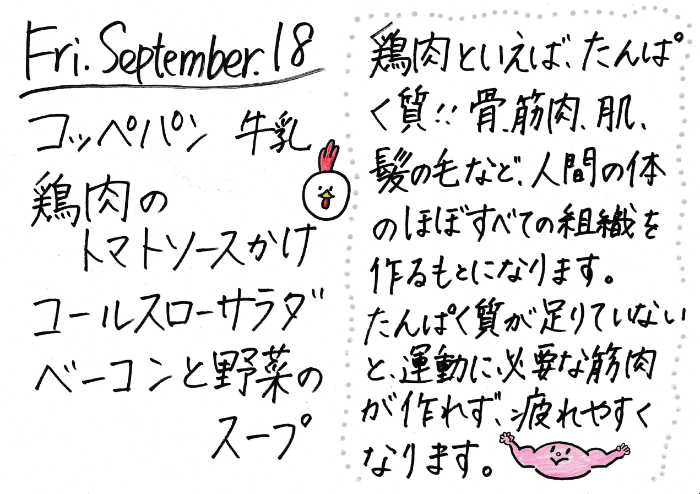 Fri. September. 18
コッペパン 牛乳
鶏肉の
トマトソースかけ
コールスローサラダ
ベーコンと野菜の
スープ
鶏肉といえば、たんぱ
く質!! 骨、筋肉、肌、
髪の毛など、人間の体
のほぼすべての組織を
作るもとになります。
たんぱく質が足りていない
と、運動に必要な筋肉
が作れず、疲れやすく
なります。